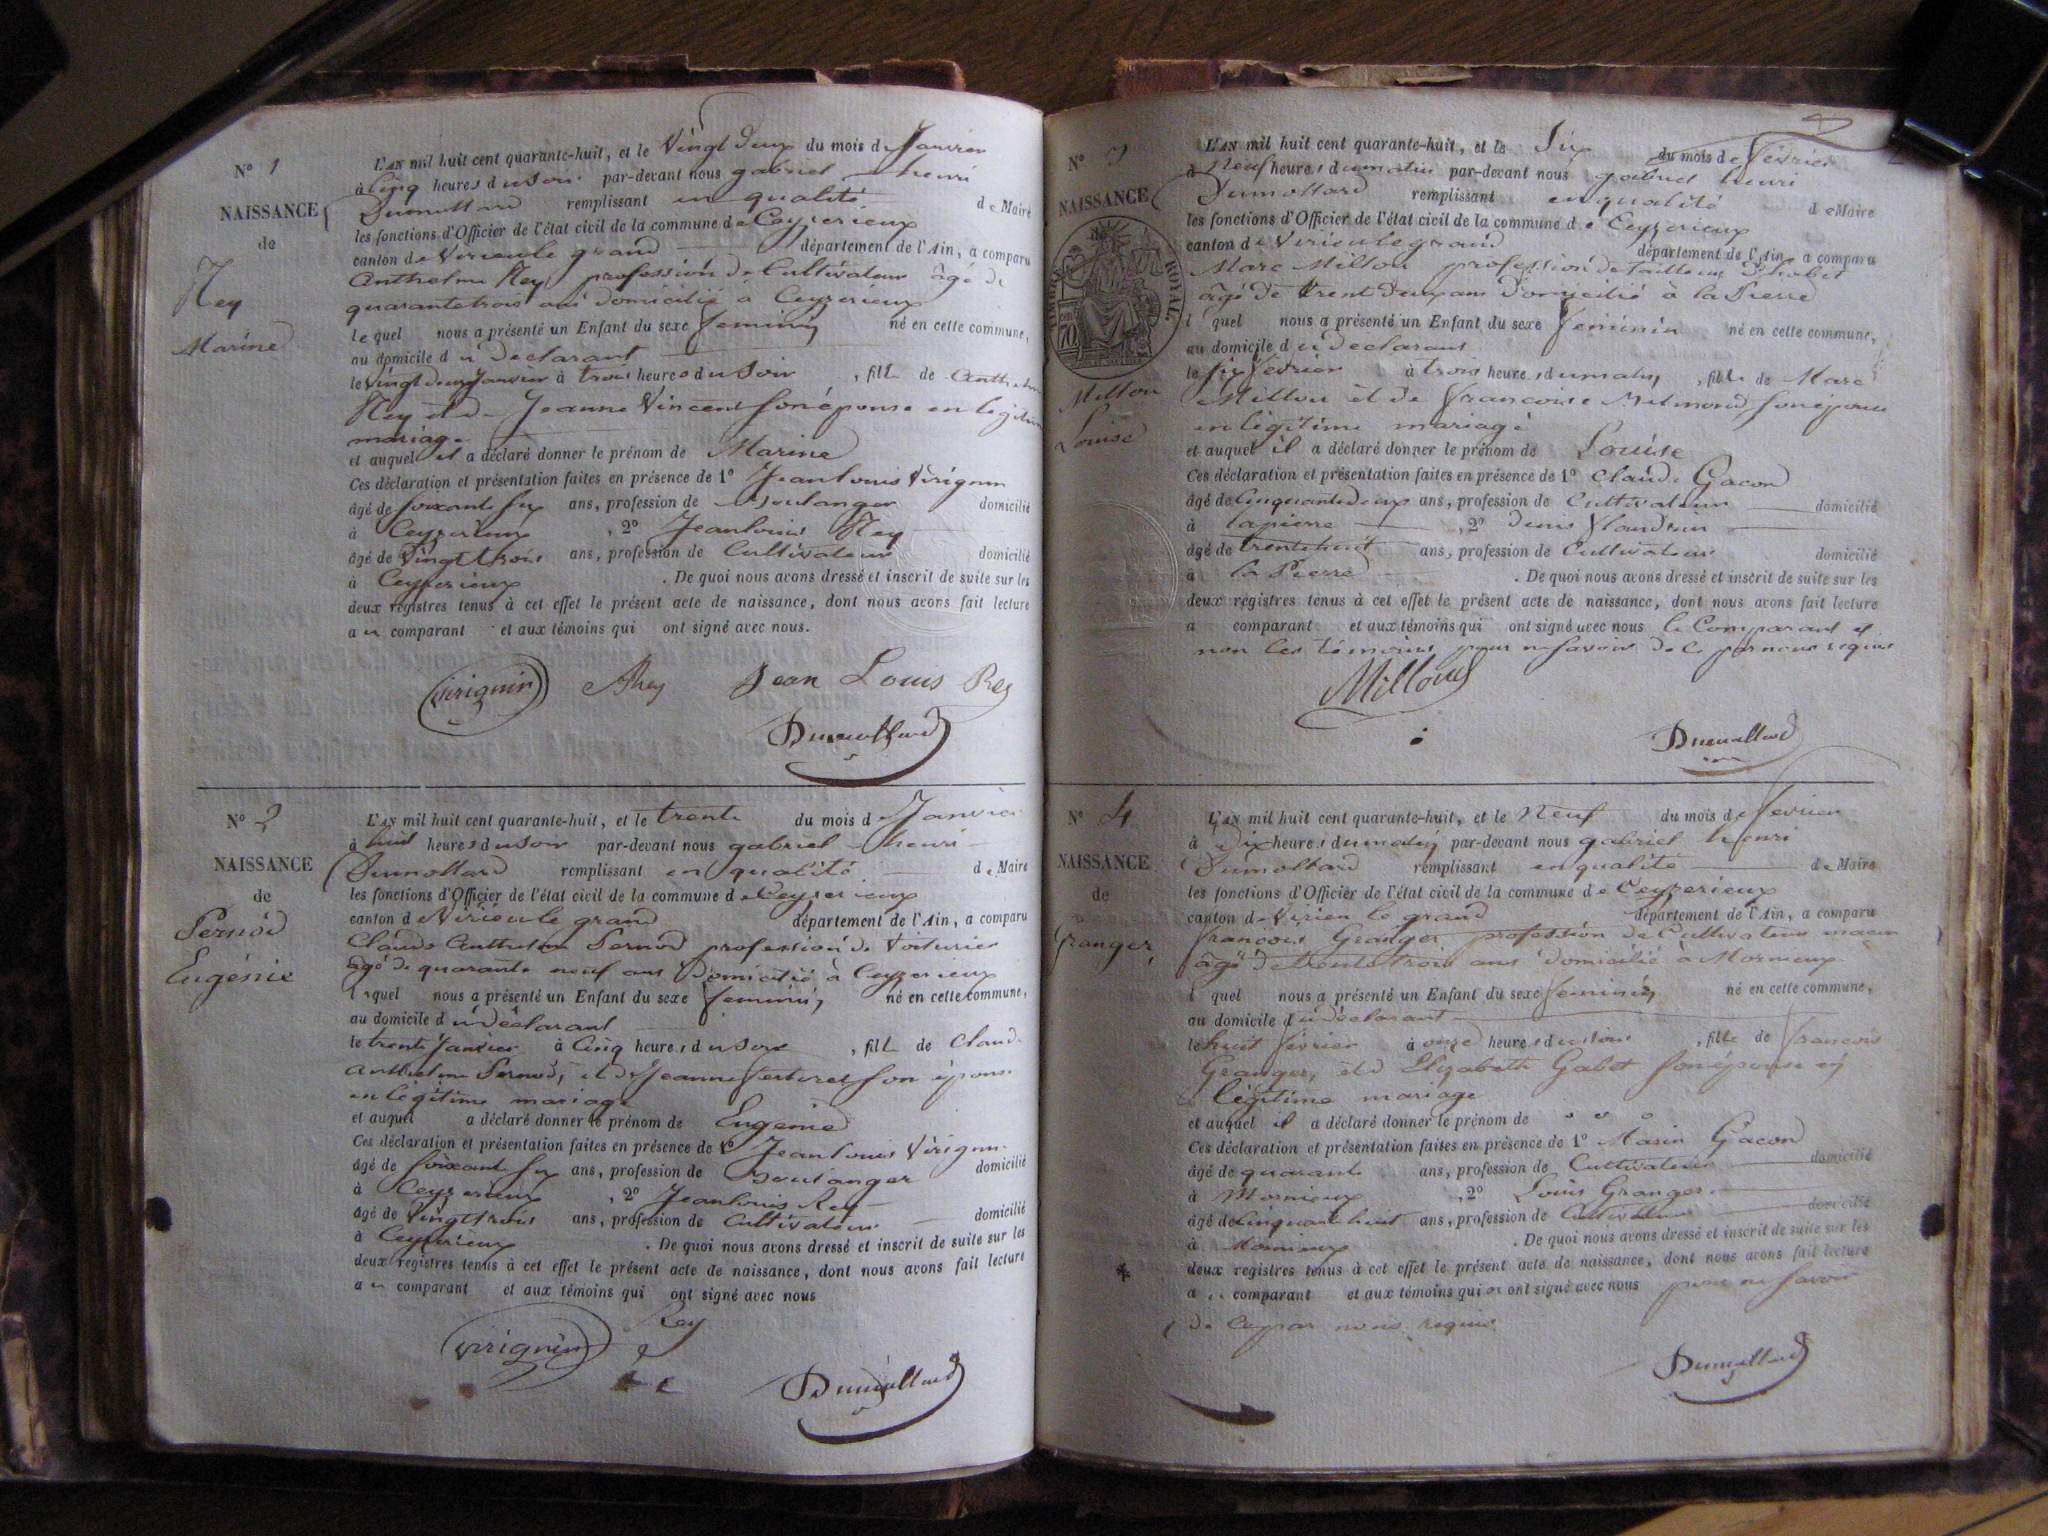 N° 1
NAISSANCE
de
Rey
Marine
L'AN mil huit cent quarante-huit, et le Vingt deux du mois de Janvier
à Cinq heures du Soir par-devant nous gabriel henri
Dumollard remplissant en qualité de Maire
les fonctions d'Officier de l'état civil de la commune de Ceyzerieux
canton de Virieu le grand département de l'Ain, a comparu
Anthelme Rey profession de Cultivateur âgé de
quarante trois ans domicilié à Ceyzerieux
le quel nous a présenté un Enfant du sexe feminin né en cette commune,
au domicile du declarant
le Vingt deux Janvier à trois heures du Soir, fille de Anthelme
Rey et de Jeanne Vincent son épouse en légitime
mariage
et auquel il a déclaré donner le prénom de Marine
Ces déclaration et présentation faites en présence de 1° Jean Louis Virignin
âgé de soixant six ans, profession de Boulanger domicilié
à Ceyzerieux, 2° Jean louis Rey
âgé de Vingt trois ans, profession de Cultivateur domicilié
à Ceyzerieux. De quoi nous avons dressé et inscrit de suite sur les
deux registres tenus à cet effet le présent acte de naissance, dont nous avons fait lecture
au comparant et aux témoins qui ont signé avec nous.
virignin ARey Jean Louis Rey
Dumollard
N° 2
NAISSANCE
de
Pernod
Eugénie
L'AN mil huit cent quarante-huit, et le trente du mois de Janvier
à huit heures du Soir par-devant nous gabriel henri
Dumollard remplissant en qualité de Maire
les fonctions d'Officier de l'état civil de la commune de Ceyzerieux
canton de Virieu le grand département de l'Ain, a comparu
Claude Anthelme Pernod profession de Voiturier
âgé de quarante neuf ans domicilié à Ceyzerieux
lequel nous a présenté un Enfant du sexe feminin né en cette commune,
au domicile du déclarant
le trente Janvier à Cinq heures du Soir, fille de Claude
Anthelme Pernod, et de Jeanne son épouse
en légitime mariage
et auquel a déclaré donner le prénom de Eugenie
Ces déclaration et présentation faites en présence de 1° Jean Louis Virignin
âgé de soixant six ans, profession de Boulanger domicilié
à Ceyzerieux, 2° Jean louis Rey
âgé de Vingt trois ans, profession de Cultivateur domicilié
à Ceyzerieux. De quoi nous avons dressé et inscrit de suite sur les
deux registres tenus à cet effet le présent acte de naissance, dont nous avons fait lecture
au comparant et aux témoins qui ont signé avec nous
virignin Rey
Dumollard
N° 3
NAISSANCE
de
TIMBRE ROYAL
Millou
Louise
L'AN mil huit cent quarante-huit, et le Six du mois de Février
à Neuf heures du matin par-devant nous gabriel henri
Dumollard remplissant en qualité de Maire
les fonctions d'Officier de l'état civil de la commune de Ceyzerieux
canton de Virieu le grand département de l'Ain, a comparu
Marc Millou profession de tailleur d'habit
âgé de trent deux ans domicilié à la Pierre
l quel nous a présenté un Enfant du sexe feminin né en cette commune,
au domicile du declarant
le six fevrier à trois heures du matin, fille de Marc
Millou et de francoise son épouse
en légitime mariage
et auquel il a déclaré donner le prénom de Louise
Ces déclaration et présentation faites en présence de 1° Claude Gacon
âgé de Cinquante deux ans, profession de Cultivateur domicilié
à la pierre, 2° denis flandrin
âgé de trente huit ans, profession de Cultivateur domicilié
à la Pierre. De quoi nous avons dressé et inscrit de suite sur les
deux registres tenus à cet effet le présent acte de naissance, dont nous avons fait lecture
a comparant et aux témoins qui ont signé avec nous le Comparant et
non les témoins pour ne savoir de ce par nous requis
Milloud
Dumollard
N° 4
NAISSANCE
de
Granger
L'AN mil huit cent quarante-huit, et le Neuf du mois de fevrier
à Dix heures du matin par-devant nous gabriel henri
Dumollard remplissant en qualité de Maire
les fonctions d'Officier de l'état civil de la commune de Ceyzerieux
canton de Virieu le grand département de l'Ain, a comparu
francois Granger profession de Cultivateur
âgé de trente trois ans domicilié à Mornieux
l quel nous a présenté un Enfant du sexe feminin né en cette commune,
au domicile du déclarant
le huit fevrier à onze heures du soir, fille de francois
Granger, et d Elizabeth Gabet son épouse en
légitime mariage
et auquel il a déclaré donner le prénom de
Ces déclaration et présentation faites en présence de 1° Marin Gacon
âgé de quarante ans, profession de Cultivateur domicilié
à Mornieux, 2° Louis Granger
âgé de Cinquant huit ans, profession de Cultivateur domicilié
à Mornieux. De quoi nous avons dressé et inscrit de suite sur les
deux registres tenus à cet effet le présent acte de naissance, dont nous avons fait lecture
au comparant et aux témoins qui ont signé avec nous pour ne savoir
de ce par nous requis
Dumollard